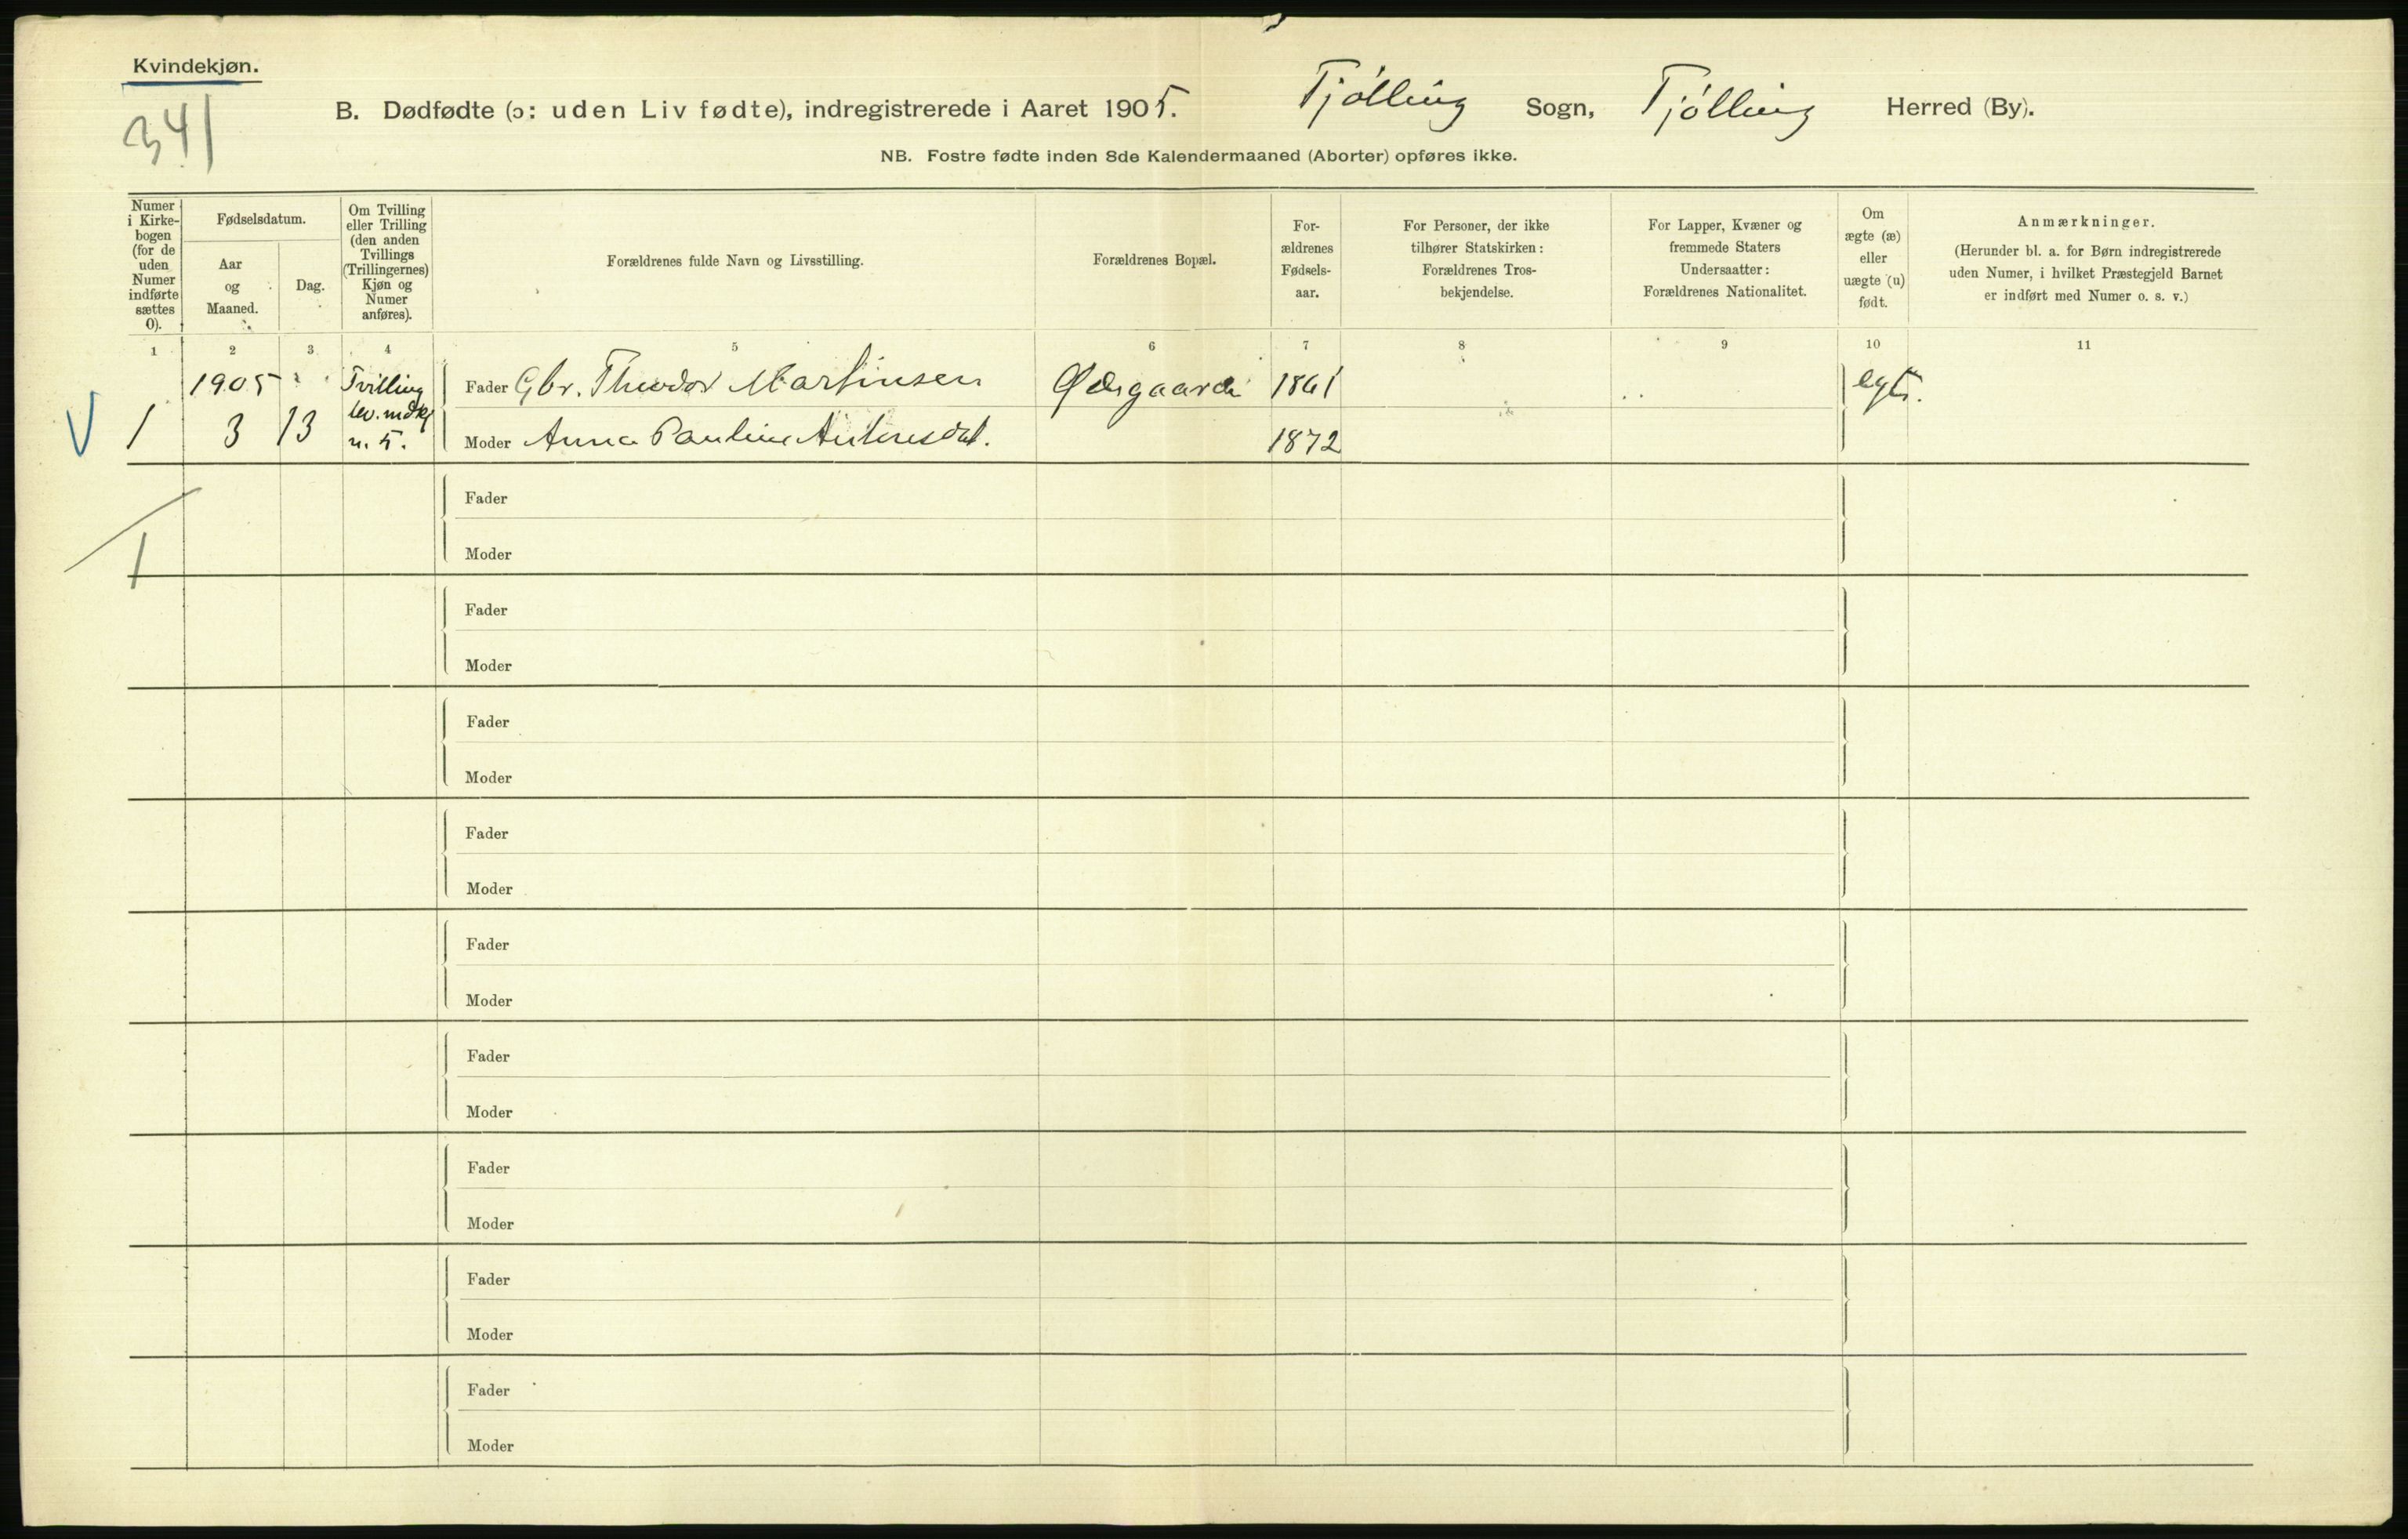 Kvindekjøn.
341
B. Dødfødte (ɔ: uden Liv fødte), indregistrerede i Aaret 1905. Tjølling Sogn, Tjølling Herred (By).
NB. Fostre fødte inden 8de Kalendermaaned (Aborter) opføres ikke.
Numer i Kirke-
bogen
(for de
uden
Numer
indførte
sættes
0).
Fødselsdatum.
Aar
og
Maaned.
Dag.
Om Tvilling
eller Trilling
(den anden
Tvillings
(Trillingernes)
Kjøn og
Numer
anføres).
Forældrenes fulde Navn og Livsstilling.
Forældrenes Bopæl.
For-
ældrenes
Fødsels-
aar.
For Personer, der ikke
tilhører Statskirken:
Forældrenes Tros-
bekjendelse.
For Lapper, Kvæner og
fremmede Staters
Undersaatter:
Forældrenes Nationalitet.
Om
ægte (æ)
eller
uægte (u)
født.
Anmærkninger.
(Herunder bl. a. for Børn indregistrerede
uden Numer, i hvilket Præstegjeld Barnet
er indført med Numer o. s. v.)
1 2 3 4 5 6 7 8 9 10 11
1905 Tvilling Fader Gbr. Theodor Martinsen 1861 egte.
lev. mdkj
V 1 3 13 n. 5. Moder Anna Pauline 1872
Fader
1 Moder
Fader
Moder
Fader
Moder
Fader
Moder
Fader
Moder
Fader
Moder
Fader
Moder
Fader
Moder
Fader
Moder